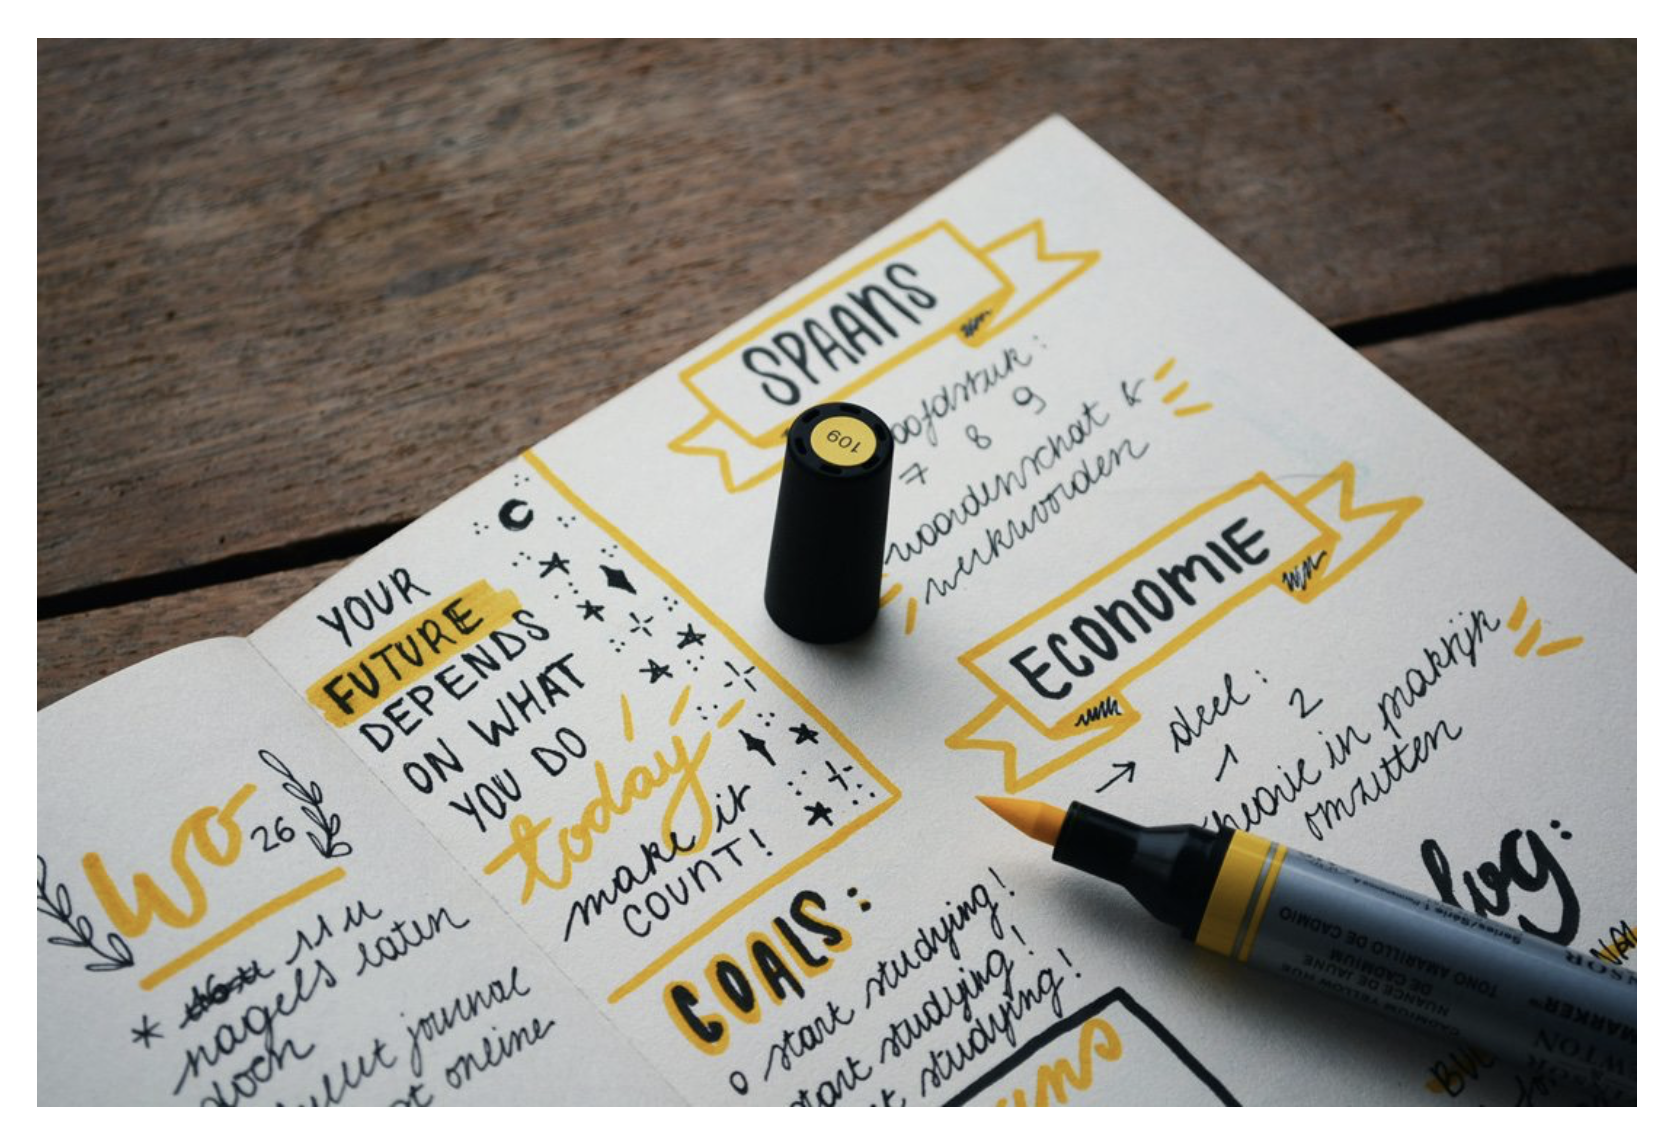 wo
26
11 u
nagels laten
doen
bullet journal
online
YOUR
FUTURE
DEPENDS
ON WHAT
YOU DO
today
make it
COUNT!
GOALS:
start studying!
start studying!
studying!
SPAANS
hoofdstuk:
7 8 9
woordenschat &
werkwoorden
ECONOMIE
→ deel:
1 2
theorie in praktijk
omzetten
109
TONO AMARILLO DE CADMIO
DE CADMIUM
NUANCE DE JAUNE
CADMIUM YELLOW HUE
MARKER™